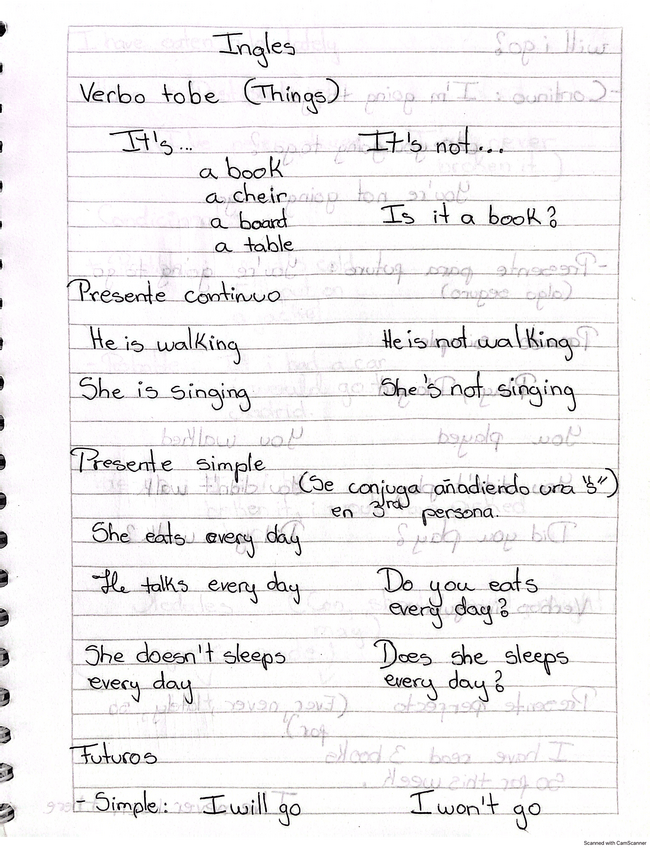 Ingles
Verbo to be (Things)
It's... It's not...
a book
a cheir
a board Is it a book?
a table
Presente continuo
He is walking He is not walking
She is singing She's not singing
Presente simple
(Se conjuga añadiendo una "s")
en 3rd persona.
She eats every day
He talks every day Do you eats
every day?
She doesn't sleeps Does she sleeps
every day every day?
Futuros
- Simple: I will go I won't go
Scanned with CamScanner